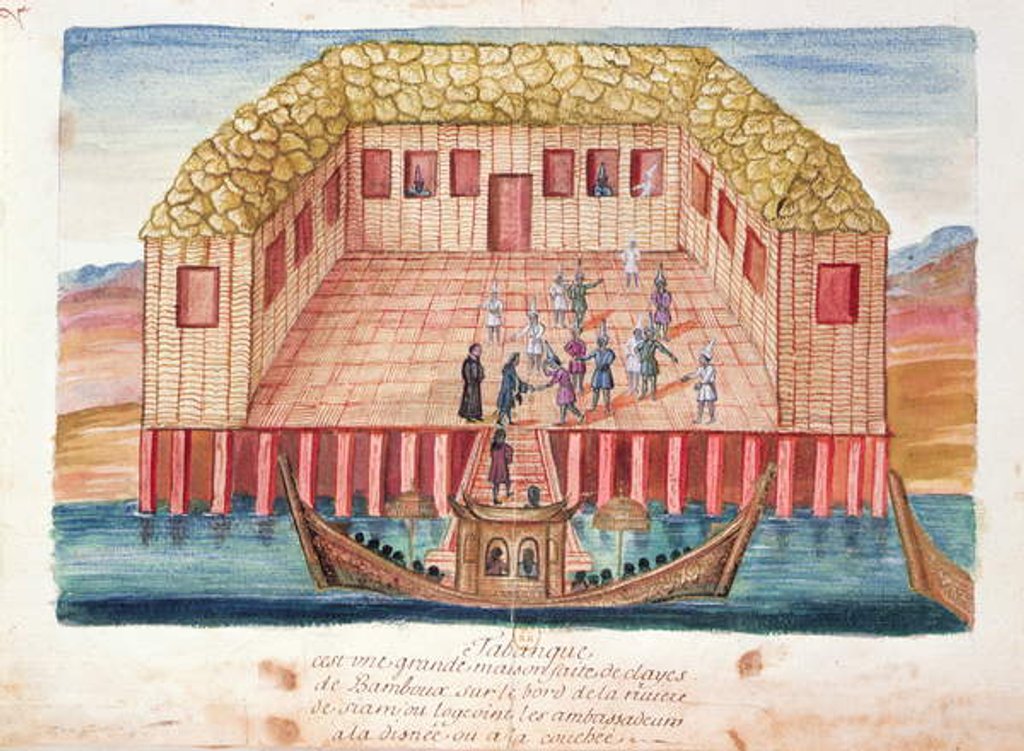 Tabanque
cest vne grande maison faite de clayes
de Bamboux sur le bord de la riuiere
de siam ou logeoint les ambassadeurs
a la disnée ou a la couchée